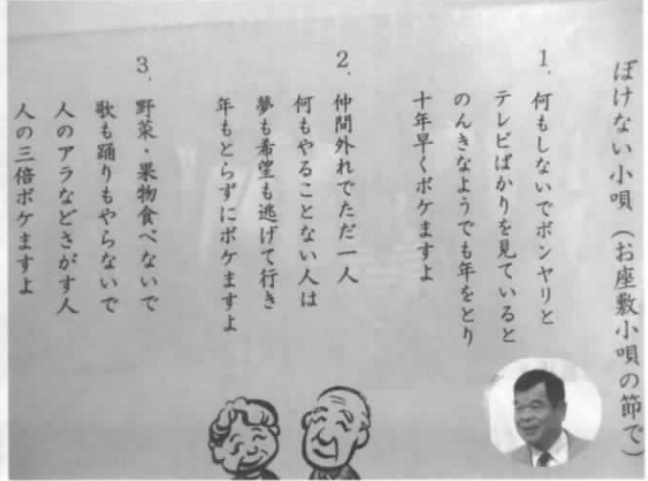 ぼけない小唄（お座敷小唄の節で）
1. 何もしないでボンヤリと
テレビばかりを見ていると
のんきなようでも年をとり
十年早くボケますよ
2. 仲間外れでただ一人
何もやることない人は
夢も希望も逃げて行き
年もとらずにボケますよ
3. 野菜・果物食べないで
歌も踊りもやらないで
人のアラなどさがす人
人の三倍ボケますよ